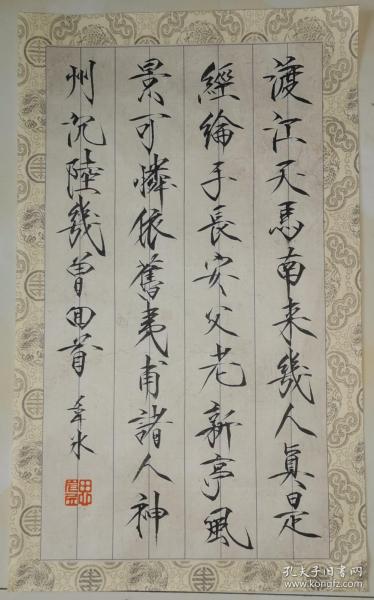 渡江天馬南来幾人真是
經綸手長安父老新亭風
景可憐依舊夷甫諸人神
州沉陸幾曾回首
孔夫子旧书网
kongfz.com